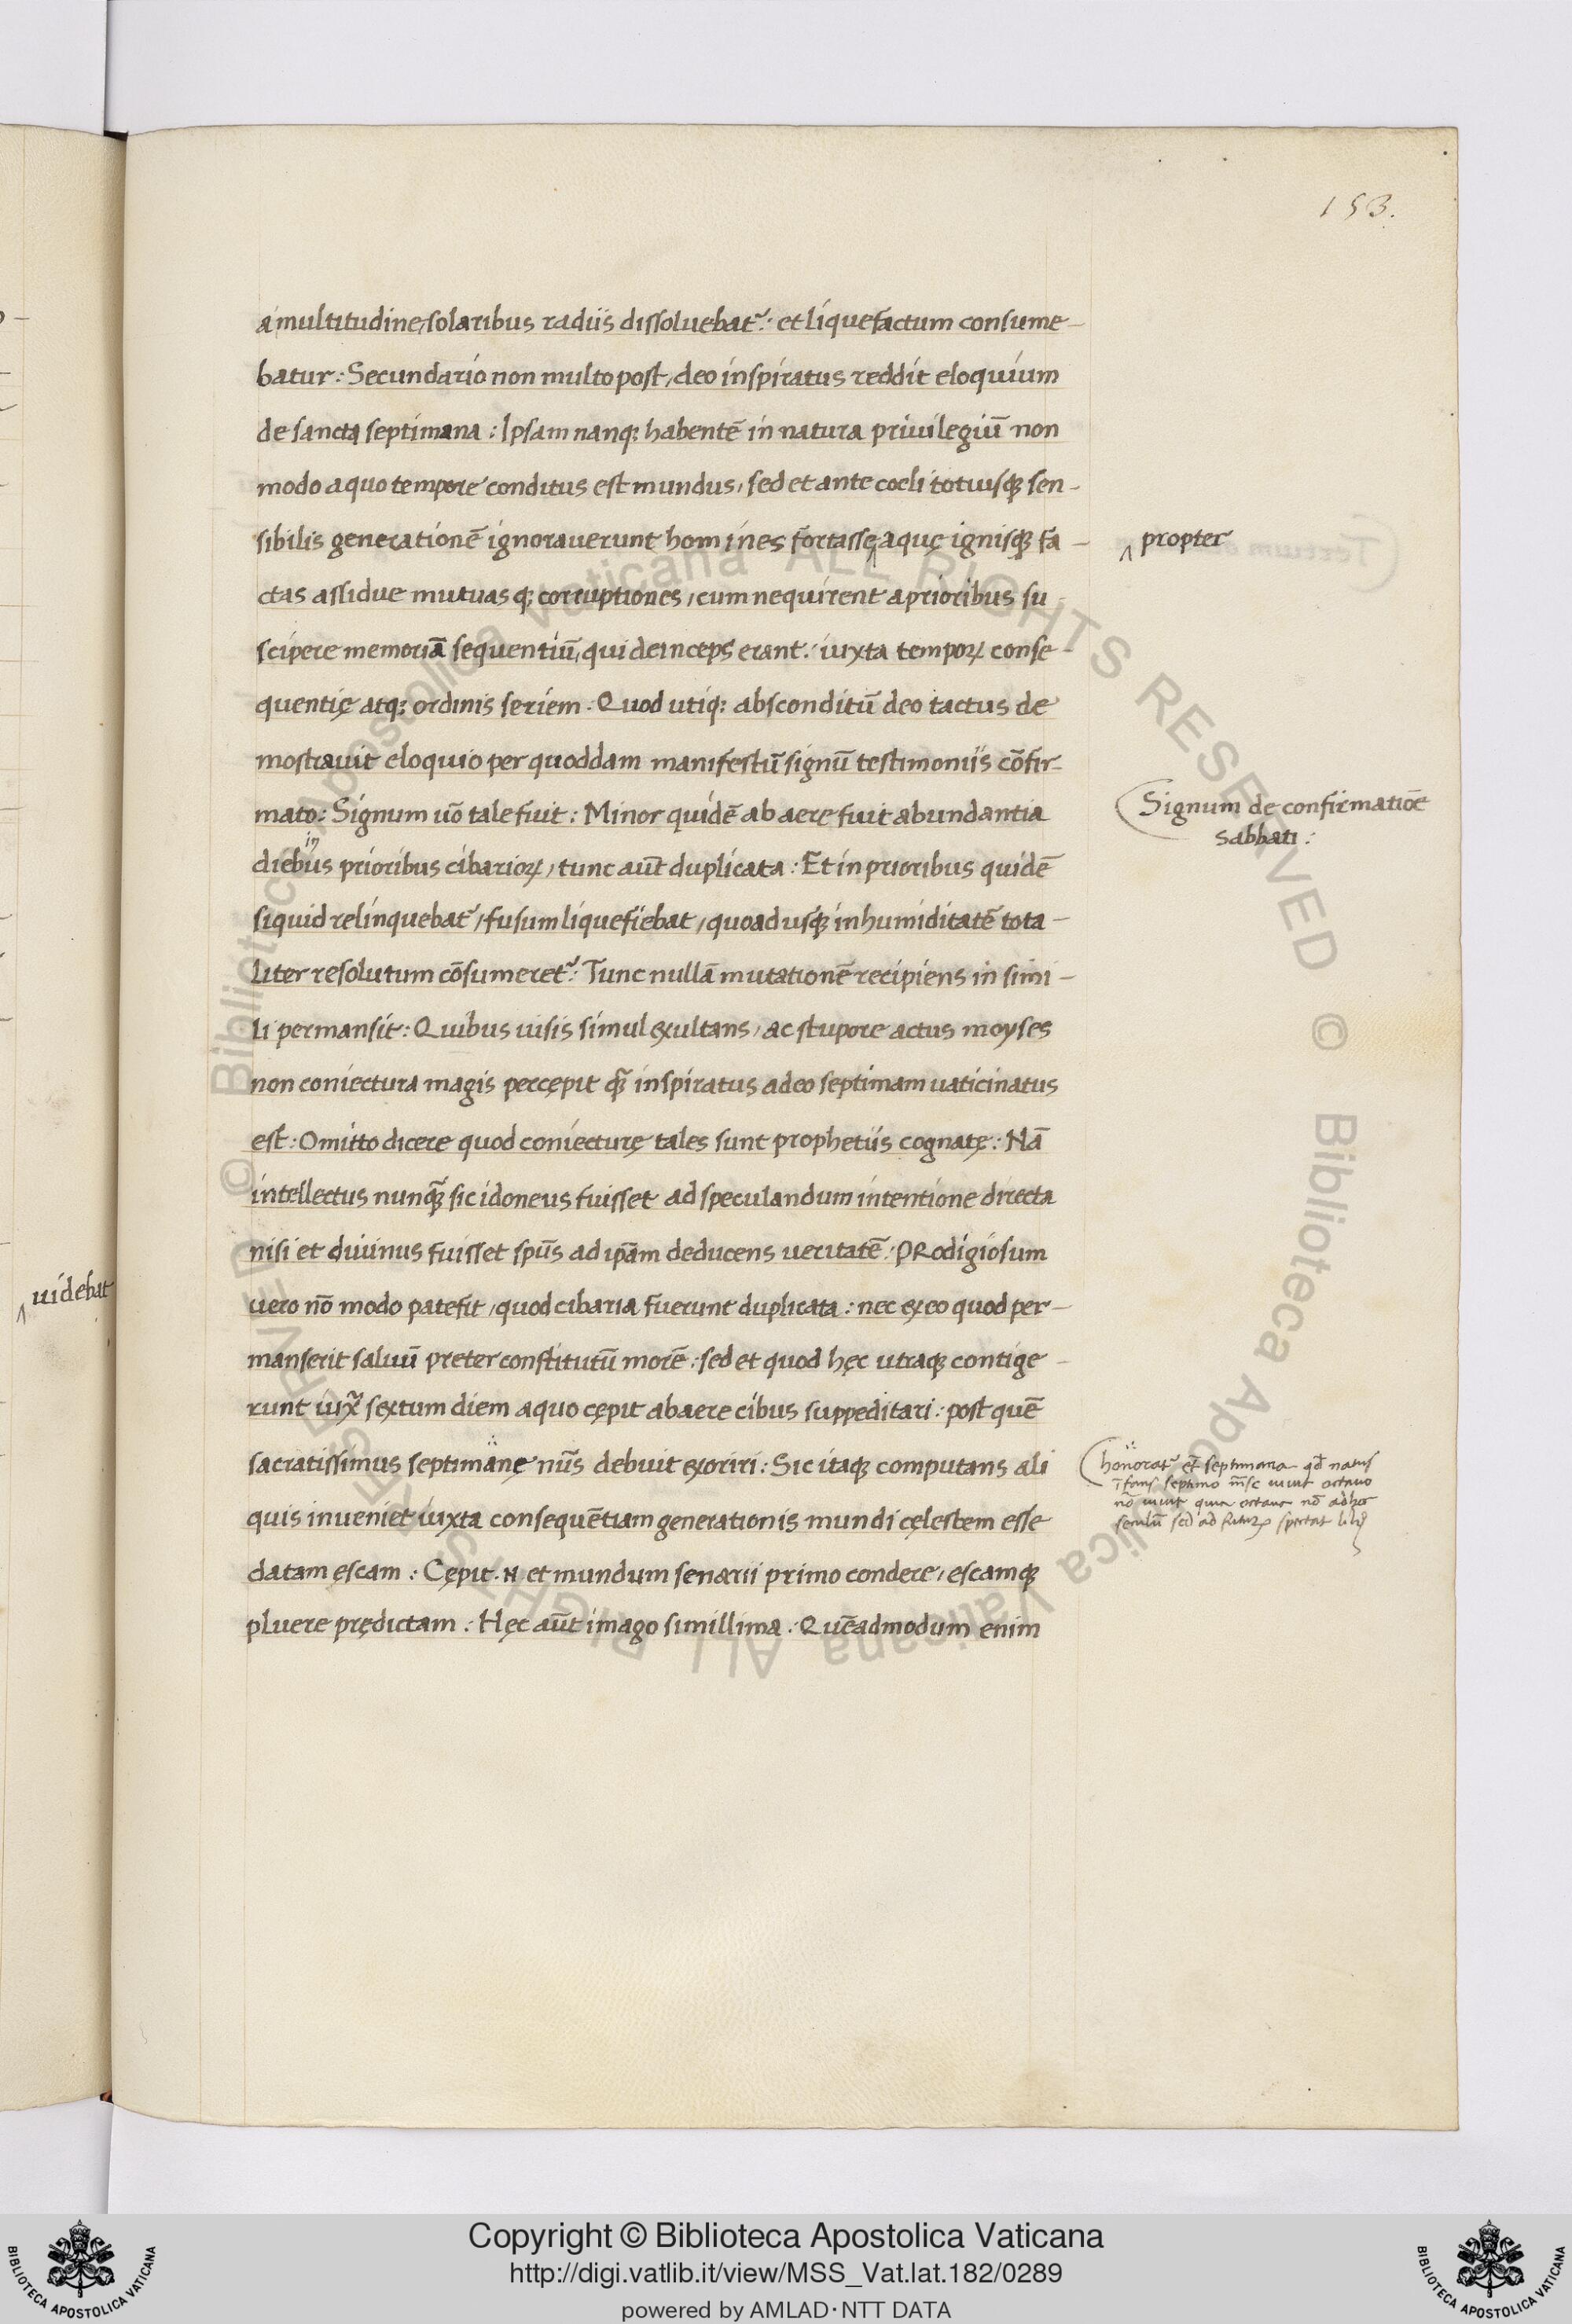 153.
a multitudine, solaribus radiis dissoluebatᷣ: et liquefactum consume-
batur: Secundario non multo post, deo inspiratus reddit eloquium
de sancta septimana: Ipsam nanq; habentē in natura priuilegiū non
modo a quo tempore conditus est mundus, sed et ante coeli totiusq; sen-
sibilis generationē ignorauerunt homines fortasse ‸ aquę ignisq; fa-
‸ propter
ctas assidue mutuasq; corruptiones, cum nequirent a prioribus su
scipere memoriā sequentiū, qui deinceps erant: iuxta temporꝝ conse-
quentię atq; ordinis seriem. Quod utiq; absconditū deo tactus de
mostrauit eloquio per quoddam manifestū signū testimoniis cōfir-
mato: Signum uō tale fuit: Minor quidē ab aere fuit abundantia
Signum de confirmatiōe
sabbati:
in
diebus prioribus cibariorꝝ, tunc aūt duplicata: Et in prioribus quidē
siquid relinquebatᷣ, fusum liquefiebat, quoadusq; in humiditatē tota-
liter resolutum cōsumeretᷣ: Tunc nullā mutationē recipiens in simi-
li permansit: Quibus uisis simul exultans, ac stupore actus moyses
non coniectura magis percępit q̄ inspiratus a deo septimam uaticinatus
est: Omitto dicere quod coniecturę tales sunt prophetiis cognatę: Nā
intellectus nunq̄ sic idoneus fuisset ad speculandum intentione directa
nisi et diuinus fuisset spūs ad ip̄am deducens ueritatē: PRodigiosum
uero nō modo patefit, quod cibaria fuerunt duplicata: nec ex eo quod per-
manserit saluū preter constitutū morē: sed et quod hęc utraq; contige-
‸ uidebat
runt iux̄ sextum diem a quo cępit ab aere cibus suppeditari: post quē
sacratissimus septimanę nūs debuit exoriri: Sic itaq; computans ali
honoratᷣ et septimana qd̄ natus
īfans septimo m̄se uiuit octauo
nō uiuit quia octaua nō ad hoc
sęculū sed ad futurꝝ spectat
quis inueniet iuxta consequētiam generationis mundi cęlestem esse
datam ęscam: Cępit .N. et mundum senarii primo condere, escamq;
pluere prędictam: Hęc aūt imago simillima: Quēadmodum enim
Copyright © Biblioteca Apostolica Vaticana
http://digi.vatlib.it/view/MSS_Vat.lat.182/0289
powered by AMLAD·NTT DATA
BIBLIOTECA APOSTOLICA VATICANA
BIBLIOTECA APOSTOLICA VATICANA
© Biblioteca Apostolica Vaticana ALL RIGHTS RESERVED © Biblioteca Apostolica Vaticana ALL RIGHTS RESERVED